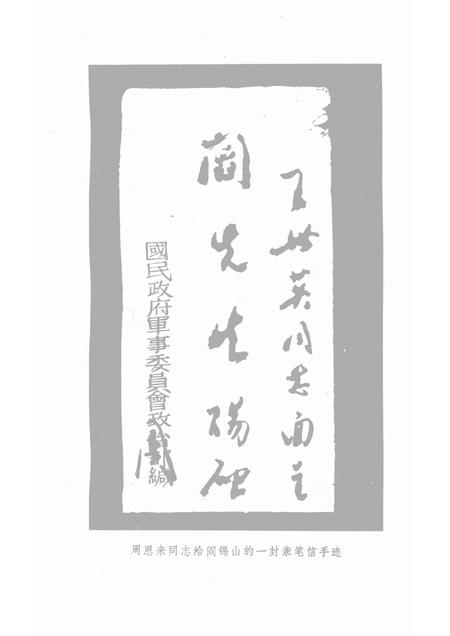 王世英同志面呈
阎先生
國民政府軍事委員會政治部緘
周
周恩来同志给阎锡山的一封亲笔信手迹